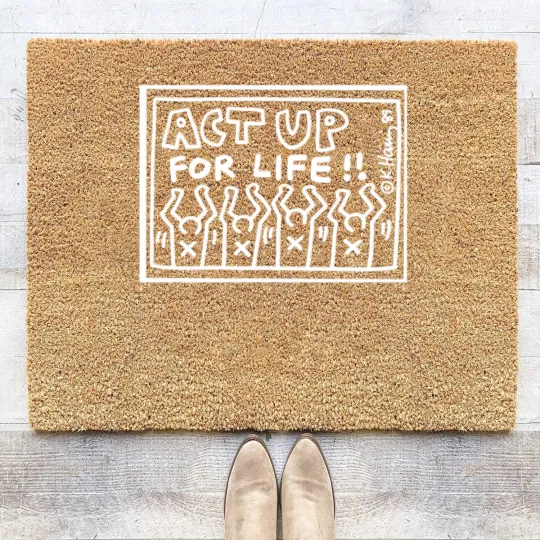 ACT UP
FOR LIFE !!
© K. Haring 89
X X X X